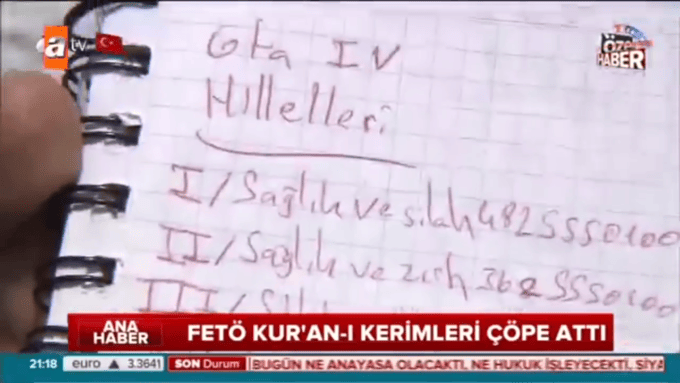 atv
ÖZ
HABER
Gta IV
Hilleleri
I/Sağlık ve silah 4825550100
II/Sağlık ve zırh 3625550100
III/
ANA
HABER
FETÖ KUR'AN-I KERİMLERİ ÇÖPE ATTI
21:18 euro ▲ 3.3641 SON Durum BUGÜN NE ANAYASA OLACAKTI, NE HUKUK İŞLEYECEKTİ, SİYA